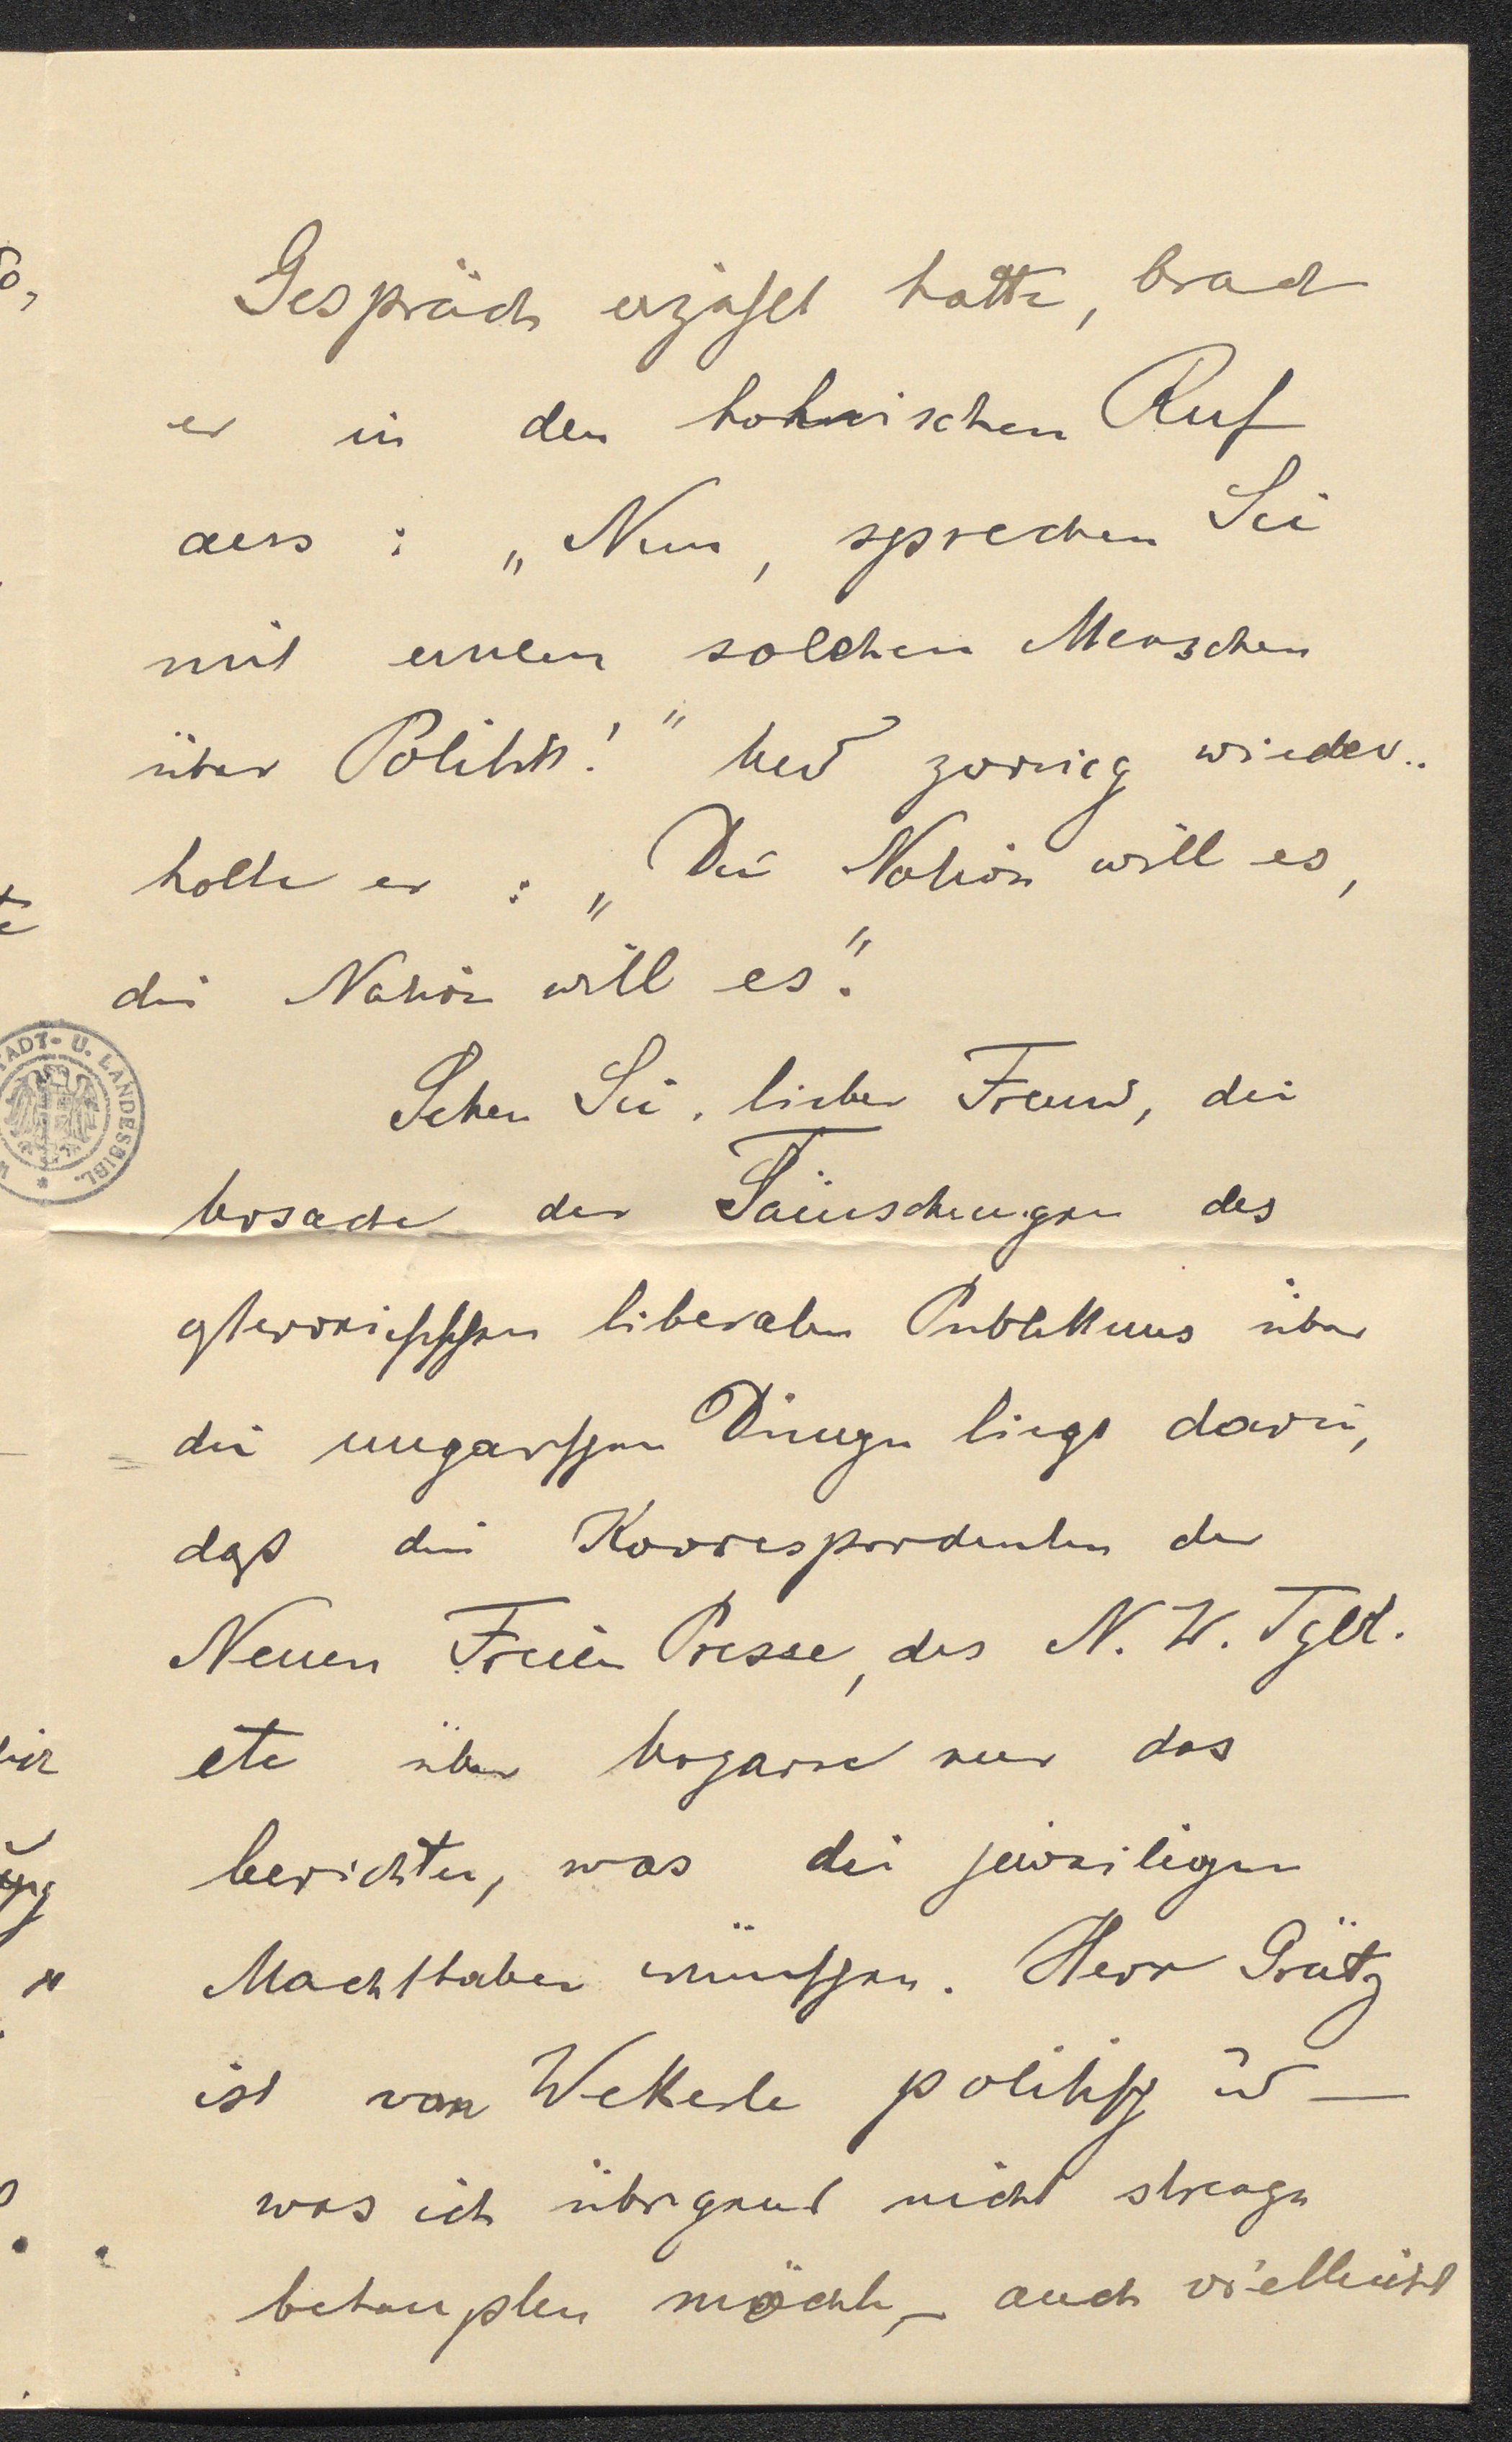 Gespräch erzählt hatte, brach
er in den höhnischen Ruf
aus : „Nun, sprechen Sie
mit einem solchen Menschen
über Politik!" Und zornig wieder-
holte er : „Die Nation will es,
die Nation will es".
Sehen Sie, lieber Freund, die
Ursache der Täuschungen des
österreichischen liberalen Publikums über
die ungarischen Dinge liegt darin,
daß die Korrespondenten der
Neuen Freien Presse, des N. W. Tgbl.
etc über Ungarn nur das
berichten, was die jeweiligen
Machthaber wünschen. Herr Grätz
ist von Wekerle politisch ū —
was ich übrigens nicht strenge
behaupten möchte, — auch vielleicht
STADT- U. LANDESBIBL.